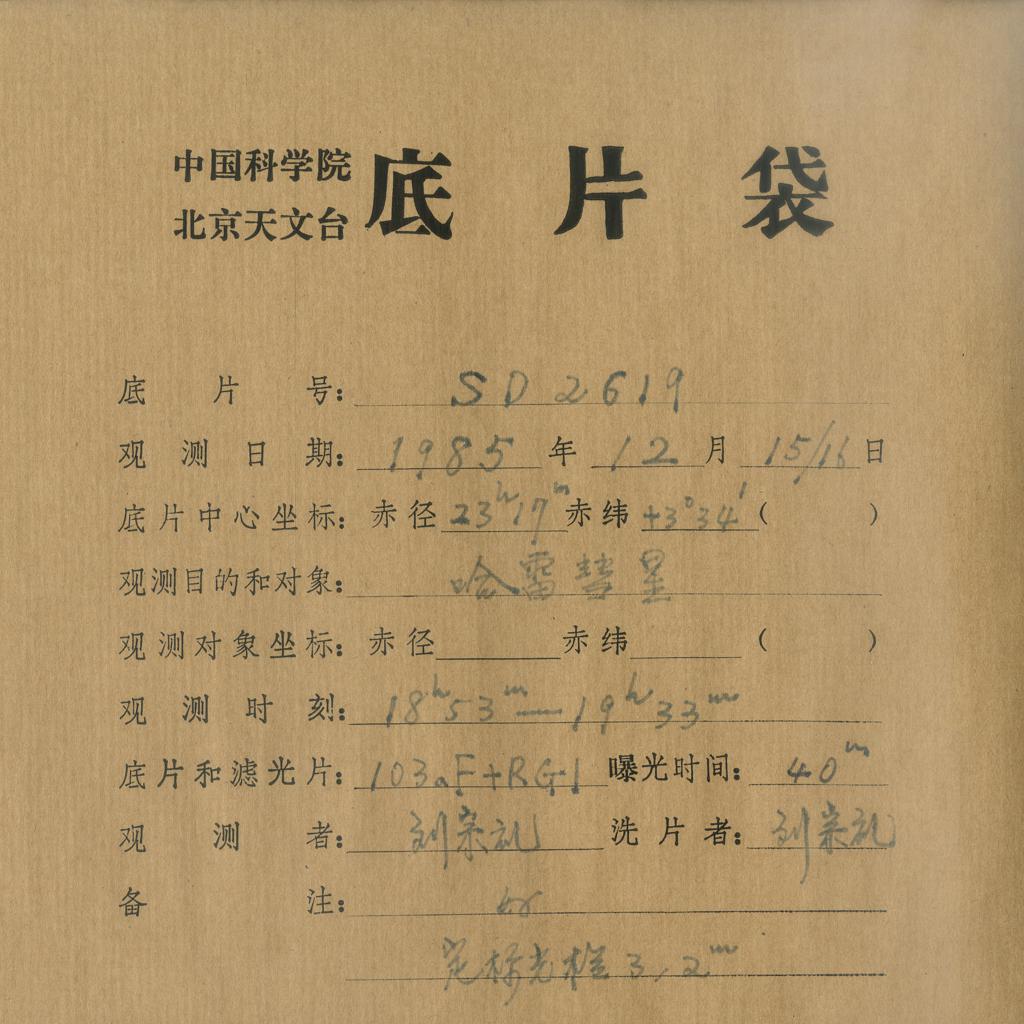 中国科学院
北京天文台 底片袋
底片号: SD2619
观测日期: 1985年12月15/16日
底片中心坐标: 赤径23h17m赤纬+3°34'( )
观测目的和对象: 哈雷彗星
观测对象坐标: 赤径 赤纬 ( )
观测时刻: 18h53m—19h33m
底片和滤光片: 103aF+RG1 曝光时间: 40m
观测者: 刘宗礼 洗片者: 刘宗礼
备注: 好
光标光栏3,2m